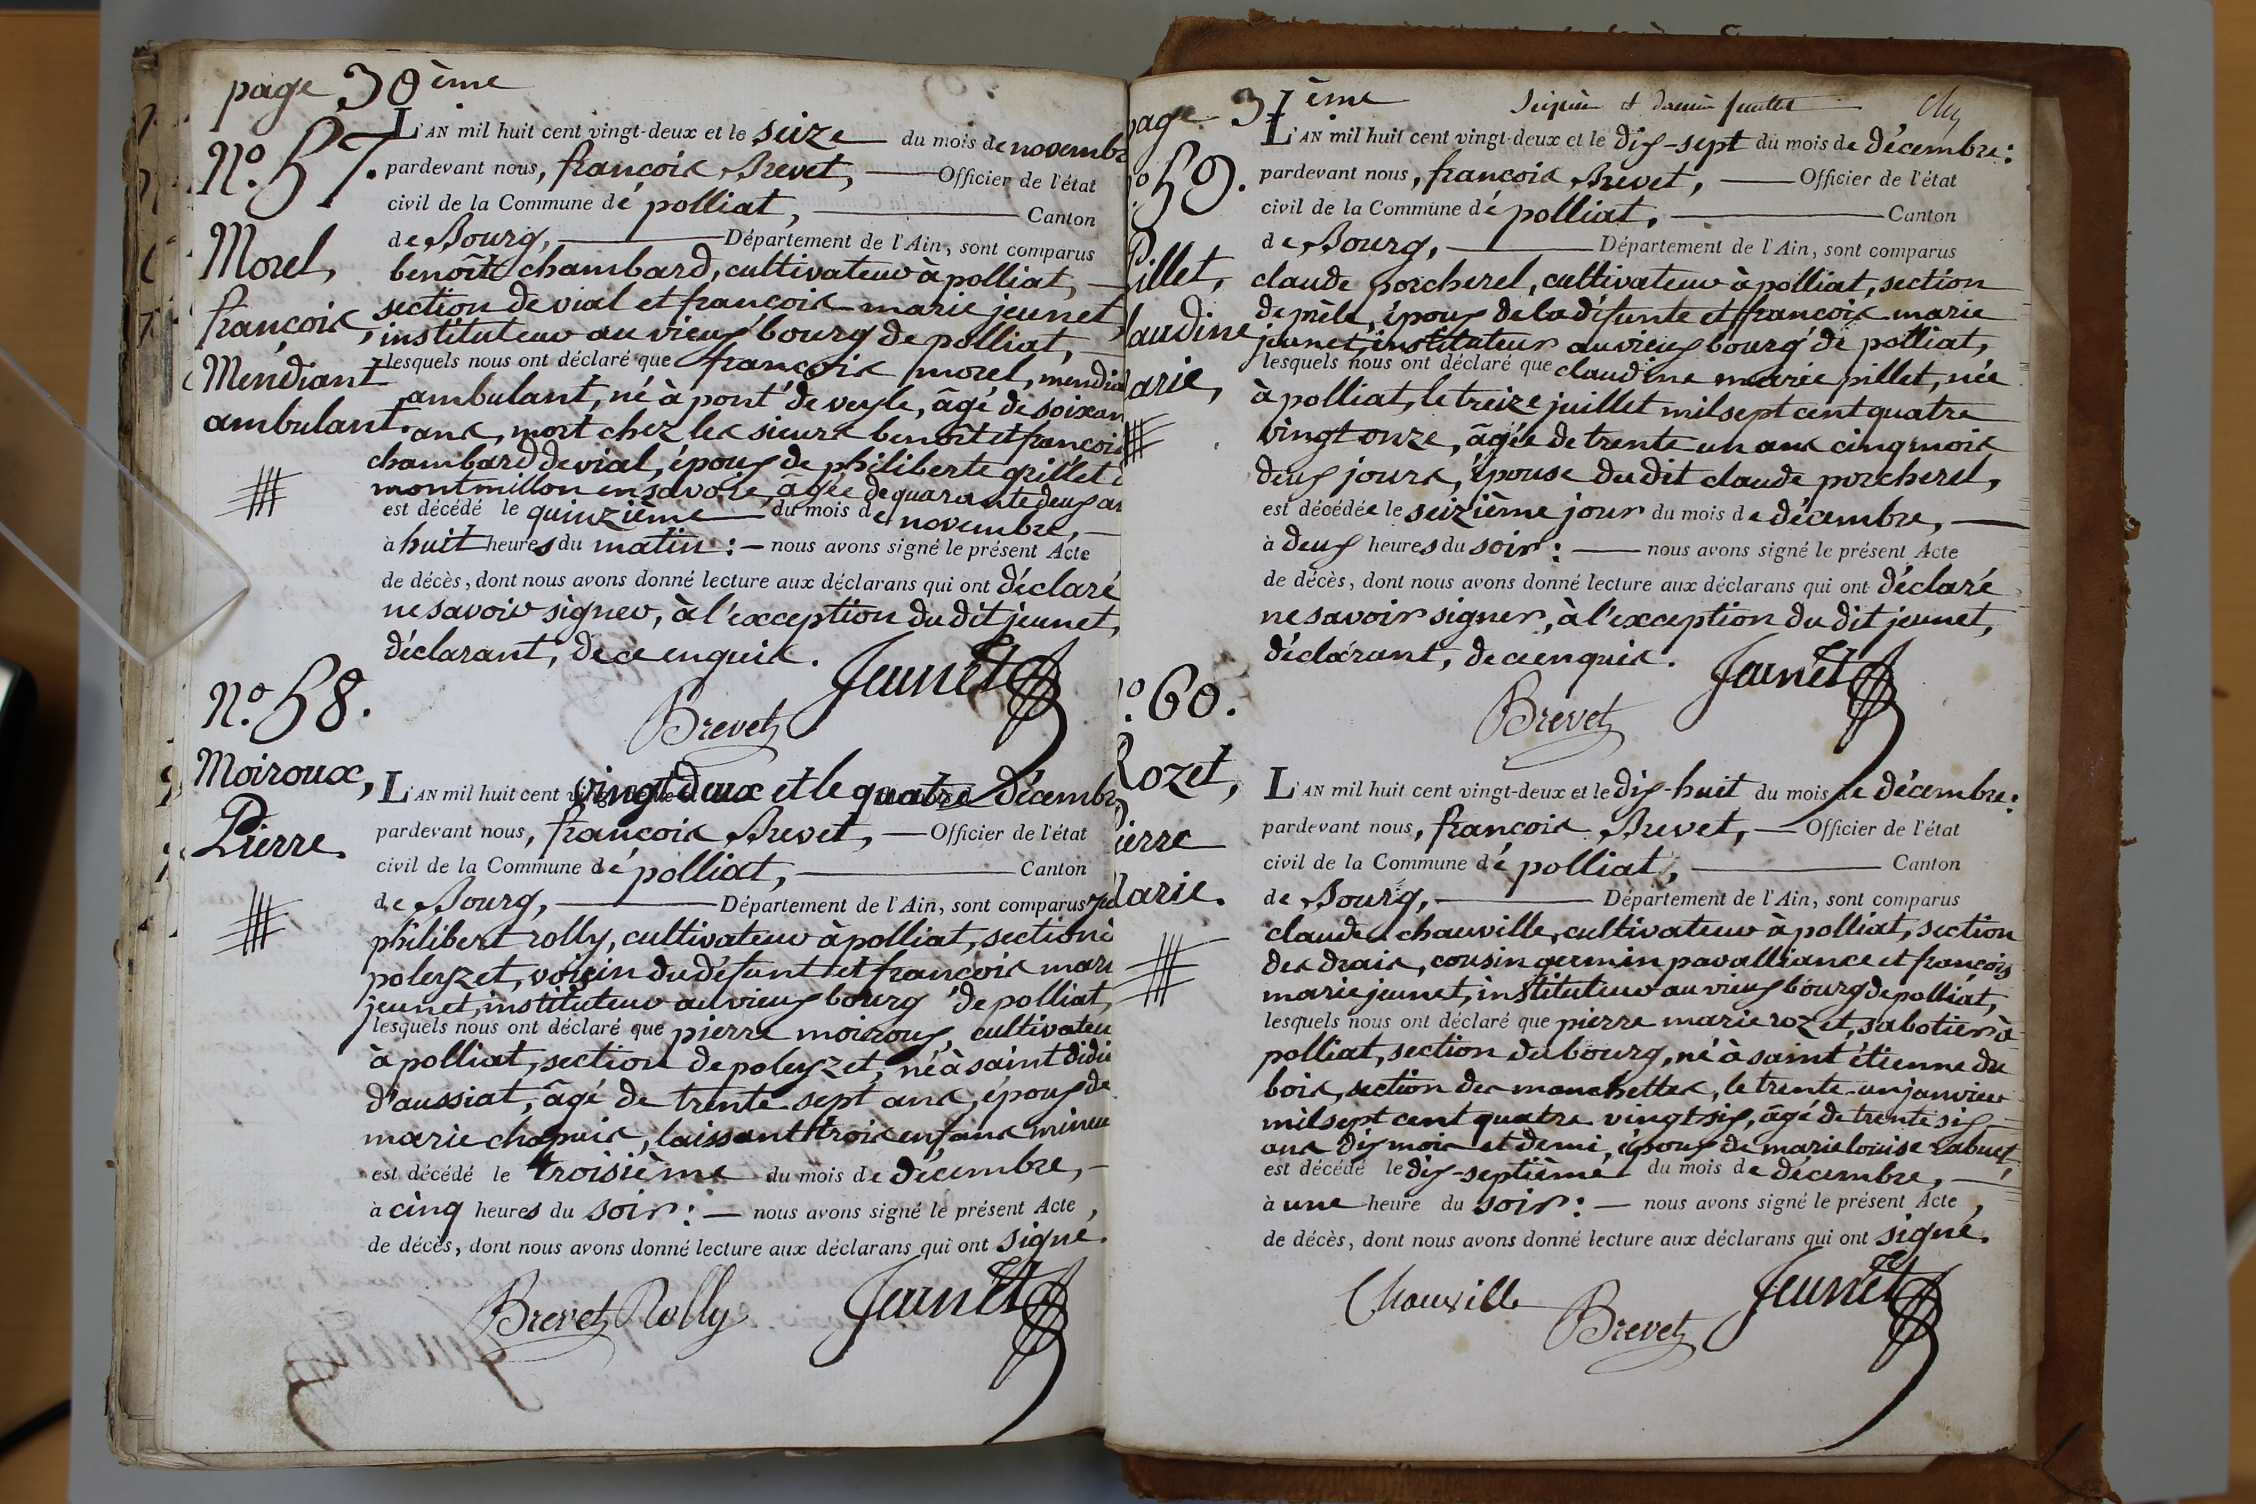 page 30ème
N.º 57.
Morel,
françois,
Mendiant
ambulant.
L'AN mil huit cent vingt-deux et le seize du mois de novembre
pardevant nous, françois Brevet, Officier de l'état
civil de la Commune de polliat, Canton
de Bourg, Département de l'Ain, sont comparus
benoît chambard, cultivateur à polliat,
section de vial et françois marie jeunet,
instituteur au vieux bourg de polliat,
lesquels nous ont déclaré que françois morel, mendia
ambulant, né à pont de veyle, âgé de soixan
ans, mort chez les sieurs benoît et françois
chambard de vial, époux de philiberte grillet
montmillon en savoie, âgée de quarante deux an
est décédé le quinzième du mois de novembre,
à huit heures du matin : nous avons signé le présent Acte
de décès, dont nous avons donné lecture aux déclarans qui ont déclaré
ne savoir signer, à l'exception du dit jeunet,
déclarant, de ce enquis.
Jeunet
Brevet
N.º 58.
Moiroux,
Pierre.
L'AN mil huit cent vingt deux et le quatre décembr
pardevant nous, françois Brevet, Officier de l'état
civil de la Commune de polliat, Canton
de Bourg, Département de l'Ain, sont comparus
philibert rolly, cultivateur à polliat, section
poleyzet, voisin du défunt et françois mari
jeunet, instituteur au vieux bourg de polliat,
lesquels nous ont déclaré que pierre moiroux, cultivateu
à polliat, section de poleyzet, né à saint didie
d'aussiat, âgé de trente sept ans, époux de
marie chapuis, laissant trois enfans mineu
est décédé le troisième du mois de décembre,
à cinq heures du soir : nous avons signé le présent Acte,
de décès, dont nous avons donné lecture aux déclarans qui ont signé.
Brevet Rolly Jeunet
page 31ème
feuillet
º 59.
Pillet,
laudine
arie,
L'AN mil huit cent vingt-deux et le dix-sept du mois de décembre :
pardevant nous, françois Brevet, Officier de l'état
civil de la Commune de polliat, Canton
de Bourg, Département de l'Ain, sont comparus
claude porcherel, cultivateur à polliat, section
de presle, époux de la défunte et françois marie
jeunet, instituteur au vieux bourg de polliat,
lesquels nous ont déclaré que claudine marie pillet, née
à polliat, le treize juillet mil sept cent quatre
vingt onze, âgée de trente un ans cinq mois
deux jours, épouse du dit claude porcherel,
est décédée le seizième jour du mois de décembre,
à deux heures du soir : nous avons signé le présent Acte
de décès, dont nous avons donné lecture aux déclarans qui ont déclaré
ne savoir signer, à l'exception du dit jeunet,
déclarant, de ce enquis.
Jeunet
Brevet
º 60.
Rozet,
ierre
Marie.
L'AN mil huit cent vingt-deux et le dix-huit du mois de décembre :
pardevant nous, françois Brevet, Officier de l'état
civil de la Commune de polliat, Canton
de Bourg, Département de l'Ain, sont comparus
claude chauville, cultivateur à polliat, section
des drais, cousin germin par alliance et françois
marie jeunet, instituteur au vieux bourg de polliat,
lesquels nous ont déclaré que pierre marie rozet, sabotier à
polliat, section du bourg, né à saint étienne du
bois, section des manchettes, le trente-un janvier
mil sept cent quatre vingt six, âgé de trente six
ans dix mois et demi, époux de marie louise rabuel,
est décédé le dix-septième du mois de décembre,
à une heure du soir : nous avons signé le présent Acte,
de décès, dont nous avons donné lecture aux déclarans qui ont signé.
Chauville Brevet Jeunet